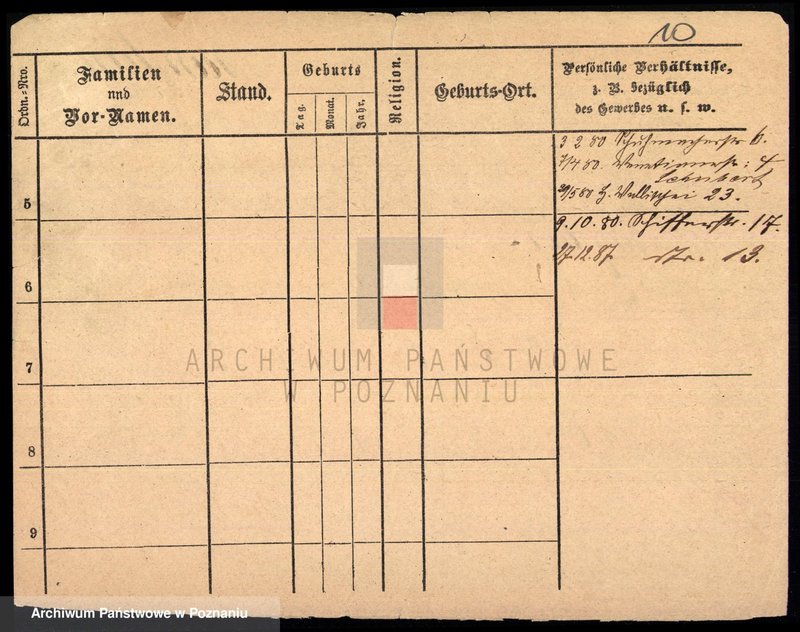 10
Ordn.-Nro.
Familien
und
Vor-Namen.
Stand.
Geburts
Tag.
Monat.
Jahr.
Religion.
Geburts-Ort.
Persönliche Verhältnisse,
z. B. bezüglich
des Gewerbes u. s. w.
3 2 80 Schuhmacherstr 6.
7/4 80. Venetianerstr: 4
Schubert
29/5 80 H. Wallischei 23.
5
9. 10. 80. Schifferstr. 17.
27.12.87. str. 13.
6
7
8
9
ARCHIWUM PAŃSTWOWE
W POZNANIU
Archiwum Państwowe w Poznaniu